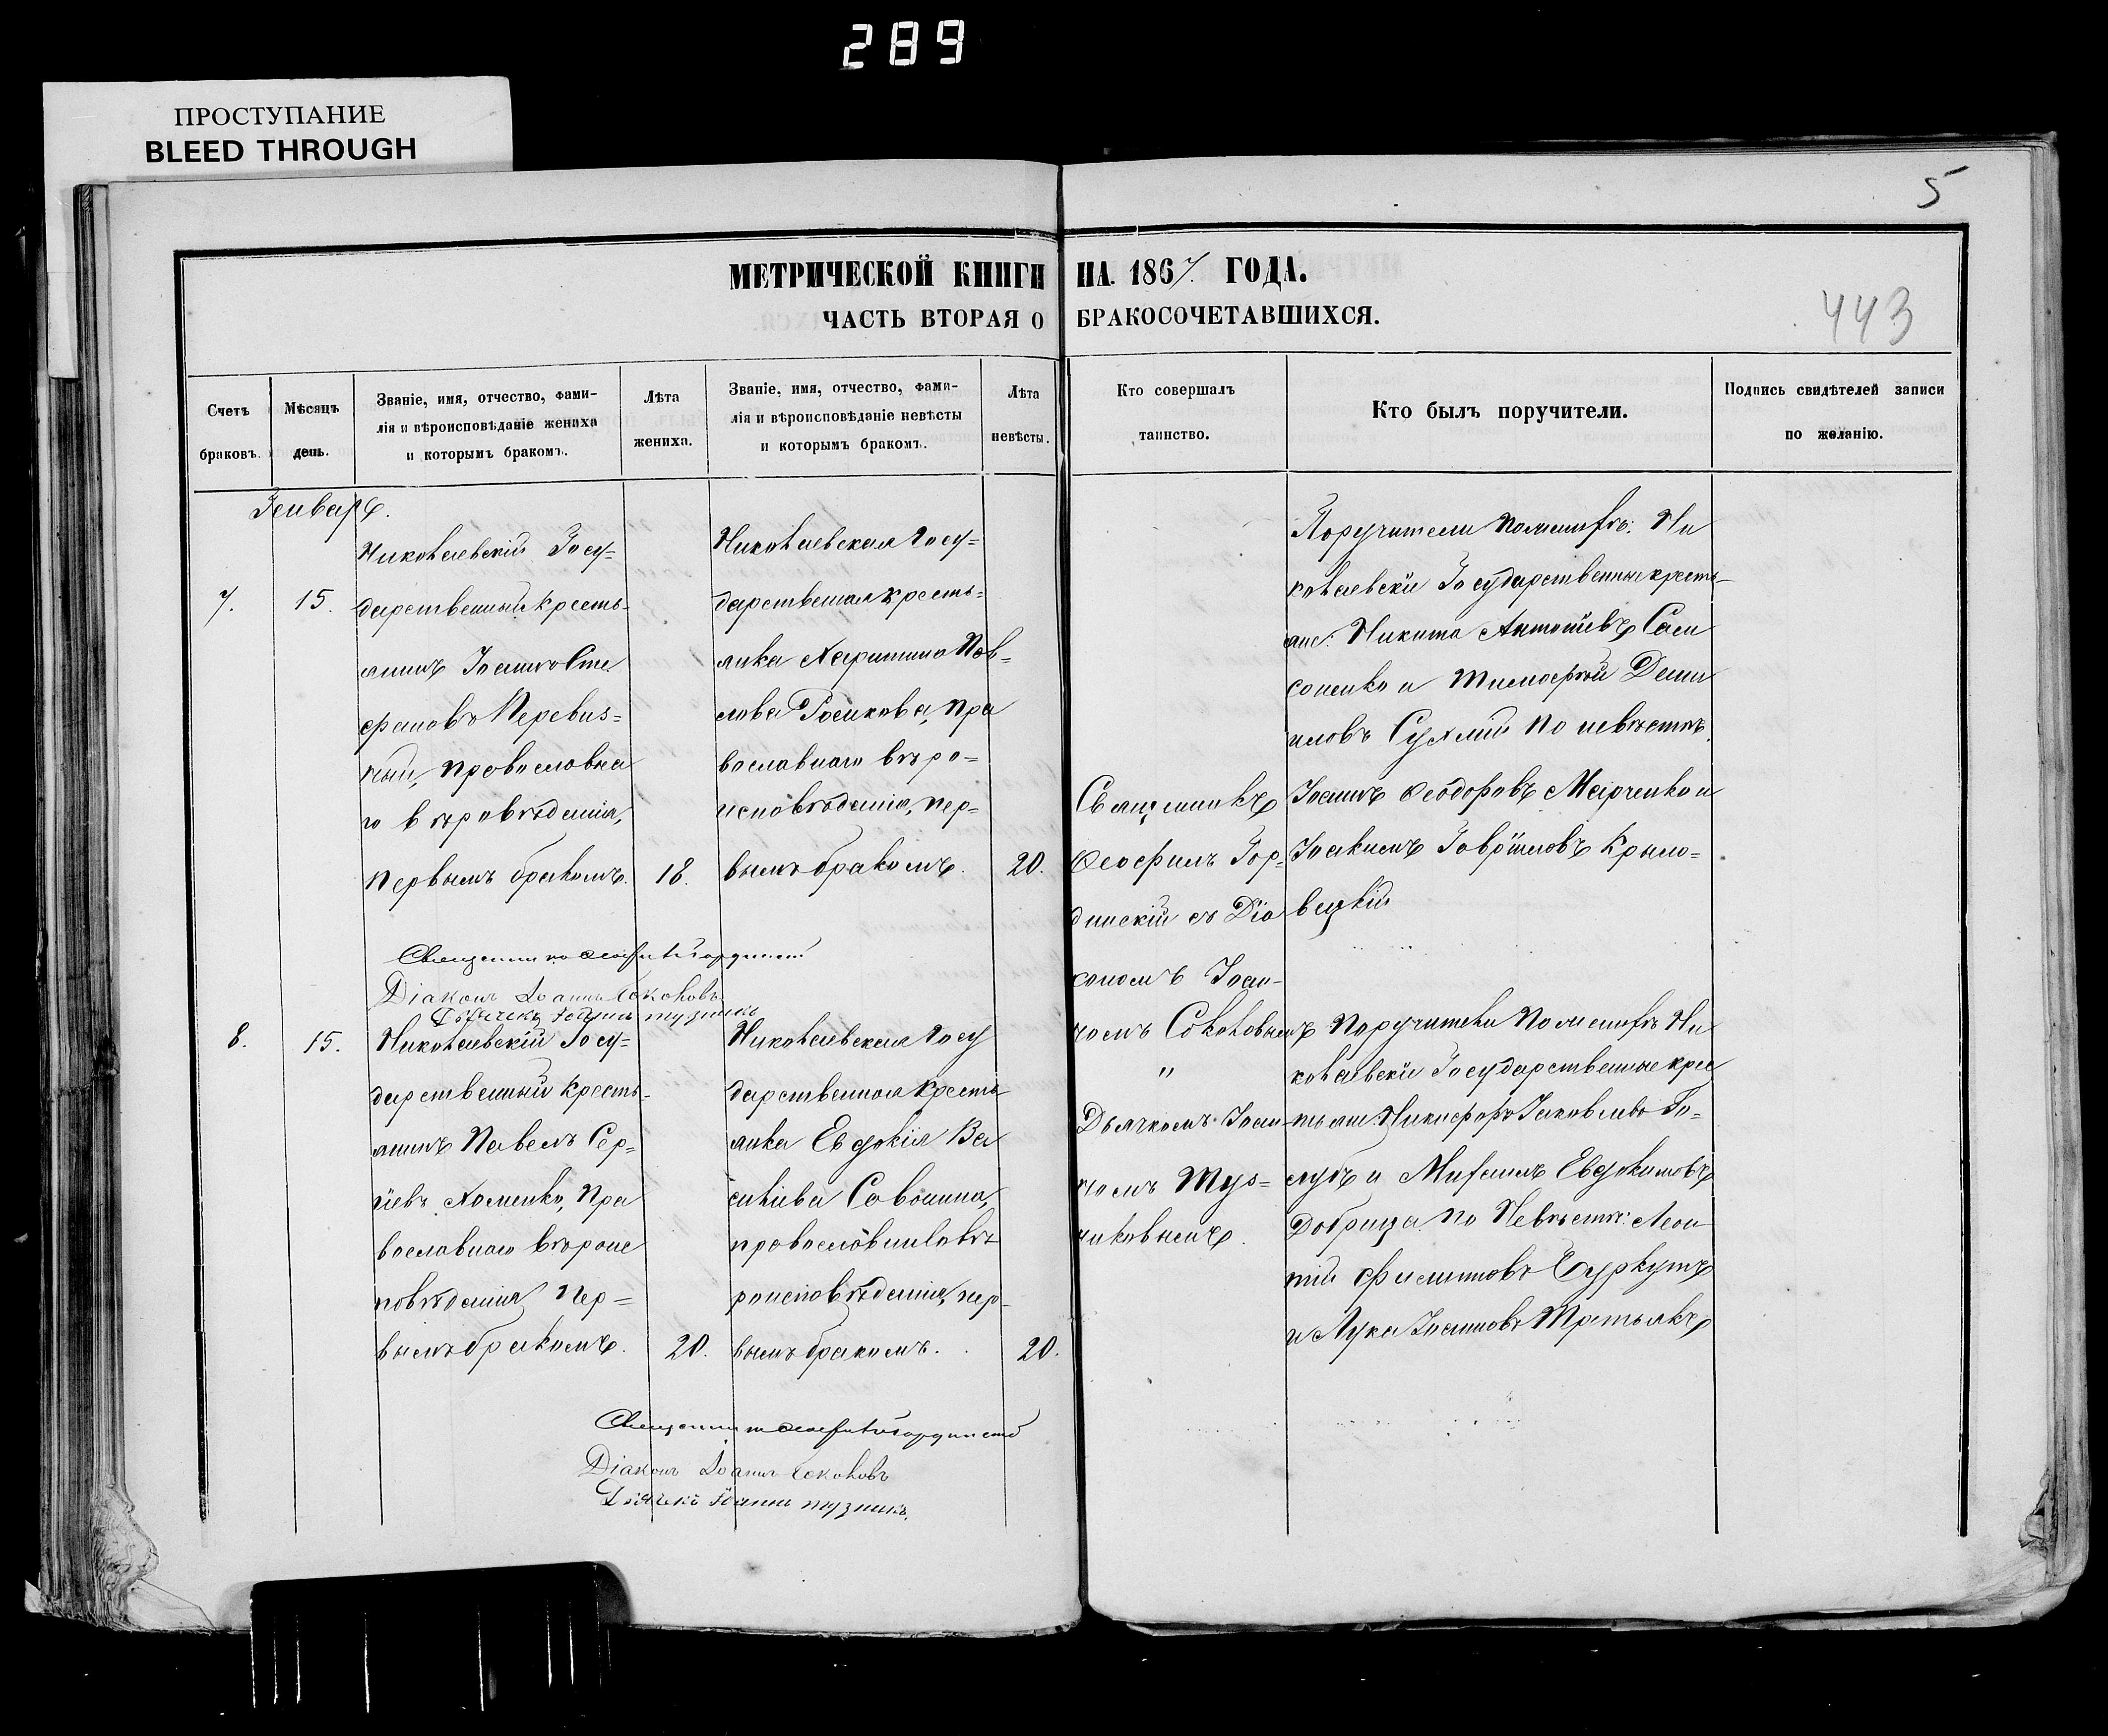 289
ПРОСТУПАНИЕ
BLEED THROUGH
5
МЕТРИЧЕСКОЙ КНИГИ НА 1867 ГОДА.
ЧАСТЬ ВТОРАЯ О БРАКОСОЧЕТАВШИХСЯ.
443
Счетъ
браковъ.
Мѣсяцъ
день.
Званіе, имя, отчество, фами-
лія и вѣроисповѣданіе жениха
и которымъ бракомъ.
Лѣта
жениха.
Званіе, имя, отчество, фами-
лія и вѣроисповѣданіе невѣсты
и которымъ бракомъ.
Лѣта
невѣсты.
Кто совершалъ
таинство.
Кто былъ поручители.
Подпись свидѣтелей записи
по желанію.
Генварь.
7.
15.
Николаевскій Госу=
дарственный кресть-
янинъ Іоаннъ Сте
фановъ Перевиз=
ный, православна
го вѣровѣденія,
первымъ бракомъ.
18.
Николаевская Госу=
дарственная кресть=
янка Харитина Пав=
лова Росикова, пра
вославнаго вѣро=
исповѣданія, пер=
вымъ бракомъ.
20.
Священникъ
Ѳеофилъ Гор=
динскій съ Діа
кономъ Іоан-
номъ Соколовымъ
"
Дьячкомъ Іоан-
номъ Туз=
никовымъ.
Поручители по женихѣ: Ни
колаевскіи Государственные кресть-
яне: Никита Антоніевъ Саси
соненко и Тимоѳей Дани
иловъ Сухлій по невѣстѣ.
Іоаннъ Ѳеодоровъ Марченко и
Іоакимъ Гавріиловъ Крыло=
вецкій
Священникъ Ѳеофилъ Гординскій
Діаконъ Іоаннъ Соколовъ
Дьячекъ Іоаннъ Тузникъ
8.
15.
Николаевскій Госу=
дарственный кресть-
янинъ Павелъ Сер=
гіевъ Хоменко, Пра
вославнаго вѣроис
повѣданія, пер=
вымъ бракомъ.
20.
Николаевская Госу
дарственная кресть-
янка Евдокія Ва
силіева Савонина,
православнаго вѣ
роисповѣданія, пер-
вымъ бракомъ.
20.
Поручители по женихѣ Ни
колаевскіи Государственные крес
тьяне: Никифоръ Іаковлевъ Го=
лубъ и Михаилъ Евдокимовъ
Добрица по Невѣстѣ: Леон
тій Филиповъ Буркутъ
и Лука Іоанновъ Третьякъ
Священникъ Ѳеофилъ Гординскій
Діаконъ Іоаннъ Соколовъ
Дьячекъ Іоаннъ Тузникъ.